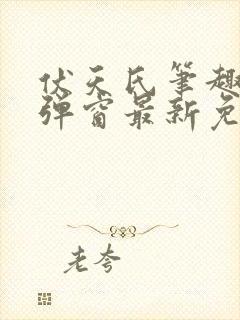 伏天氏笔趣
弹窗最新免
老夸